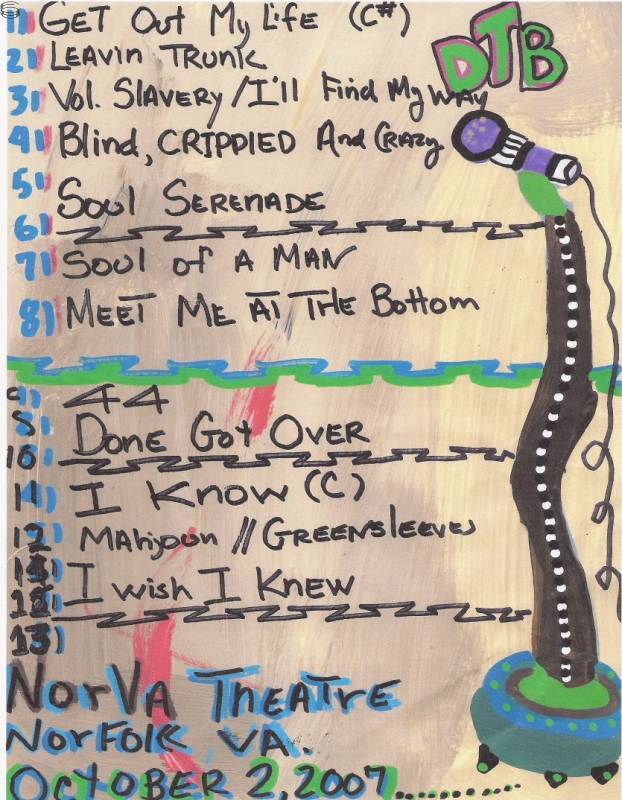 DTB
1) GET Out My LiFE (C#)
2) LEAVIN TRUNK
3) Vol. SLAVERY / I'll Find My WAY
4) Blind, CRIPPlED And CRAZY
5) SOUl SERENADE
6)
7) SOUl of A MAN
8) MEET ME AT THE BOTTOM
44
DONE GOT OVER
10)
11) I KNOW (C)
12) MAHjoun // GREENslEEVES
I wish I KNEW
13)
NorVA THEATRE
NORFOLK VA.
OCTOBER 2, 2007